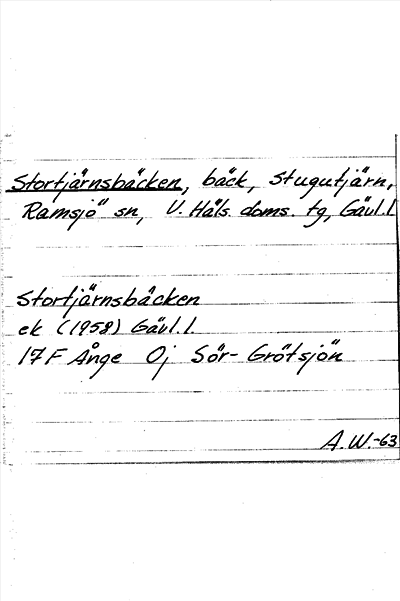 Stortjärnsbäcken, bäck, Stugutjärn,
Ramsjö sn, V. Häls. doms. tg, Gävl.l
Stortjärnsbäcken
ek (1958) Gävl.l.
17 F Ånge Oj Sör-Grötsjön
A.W.-63